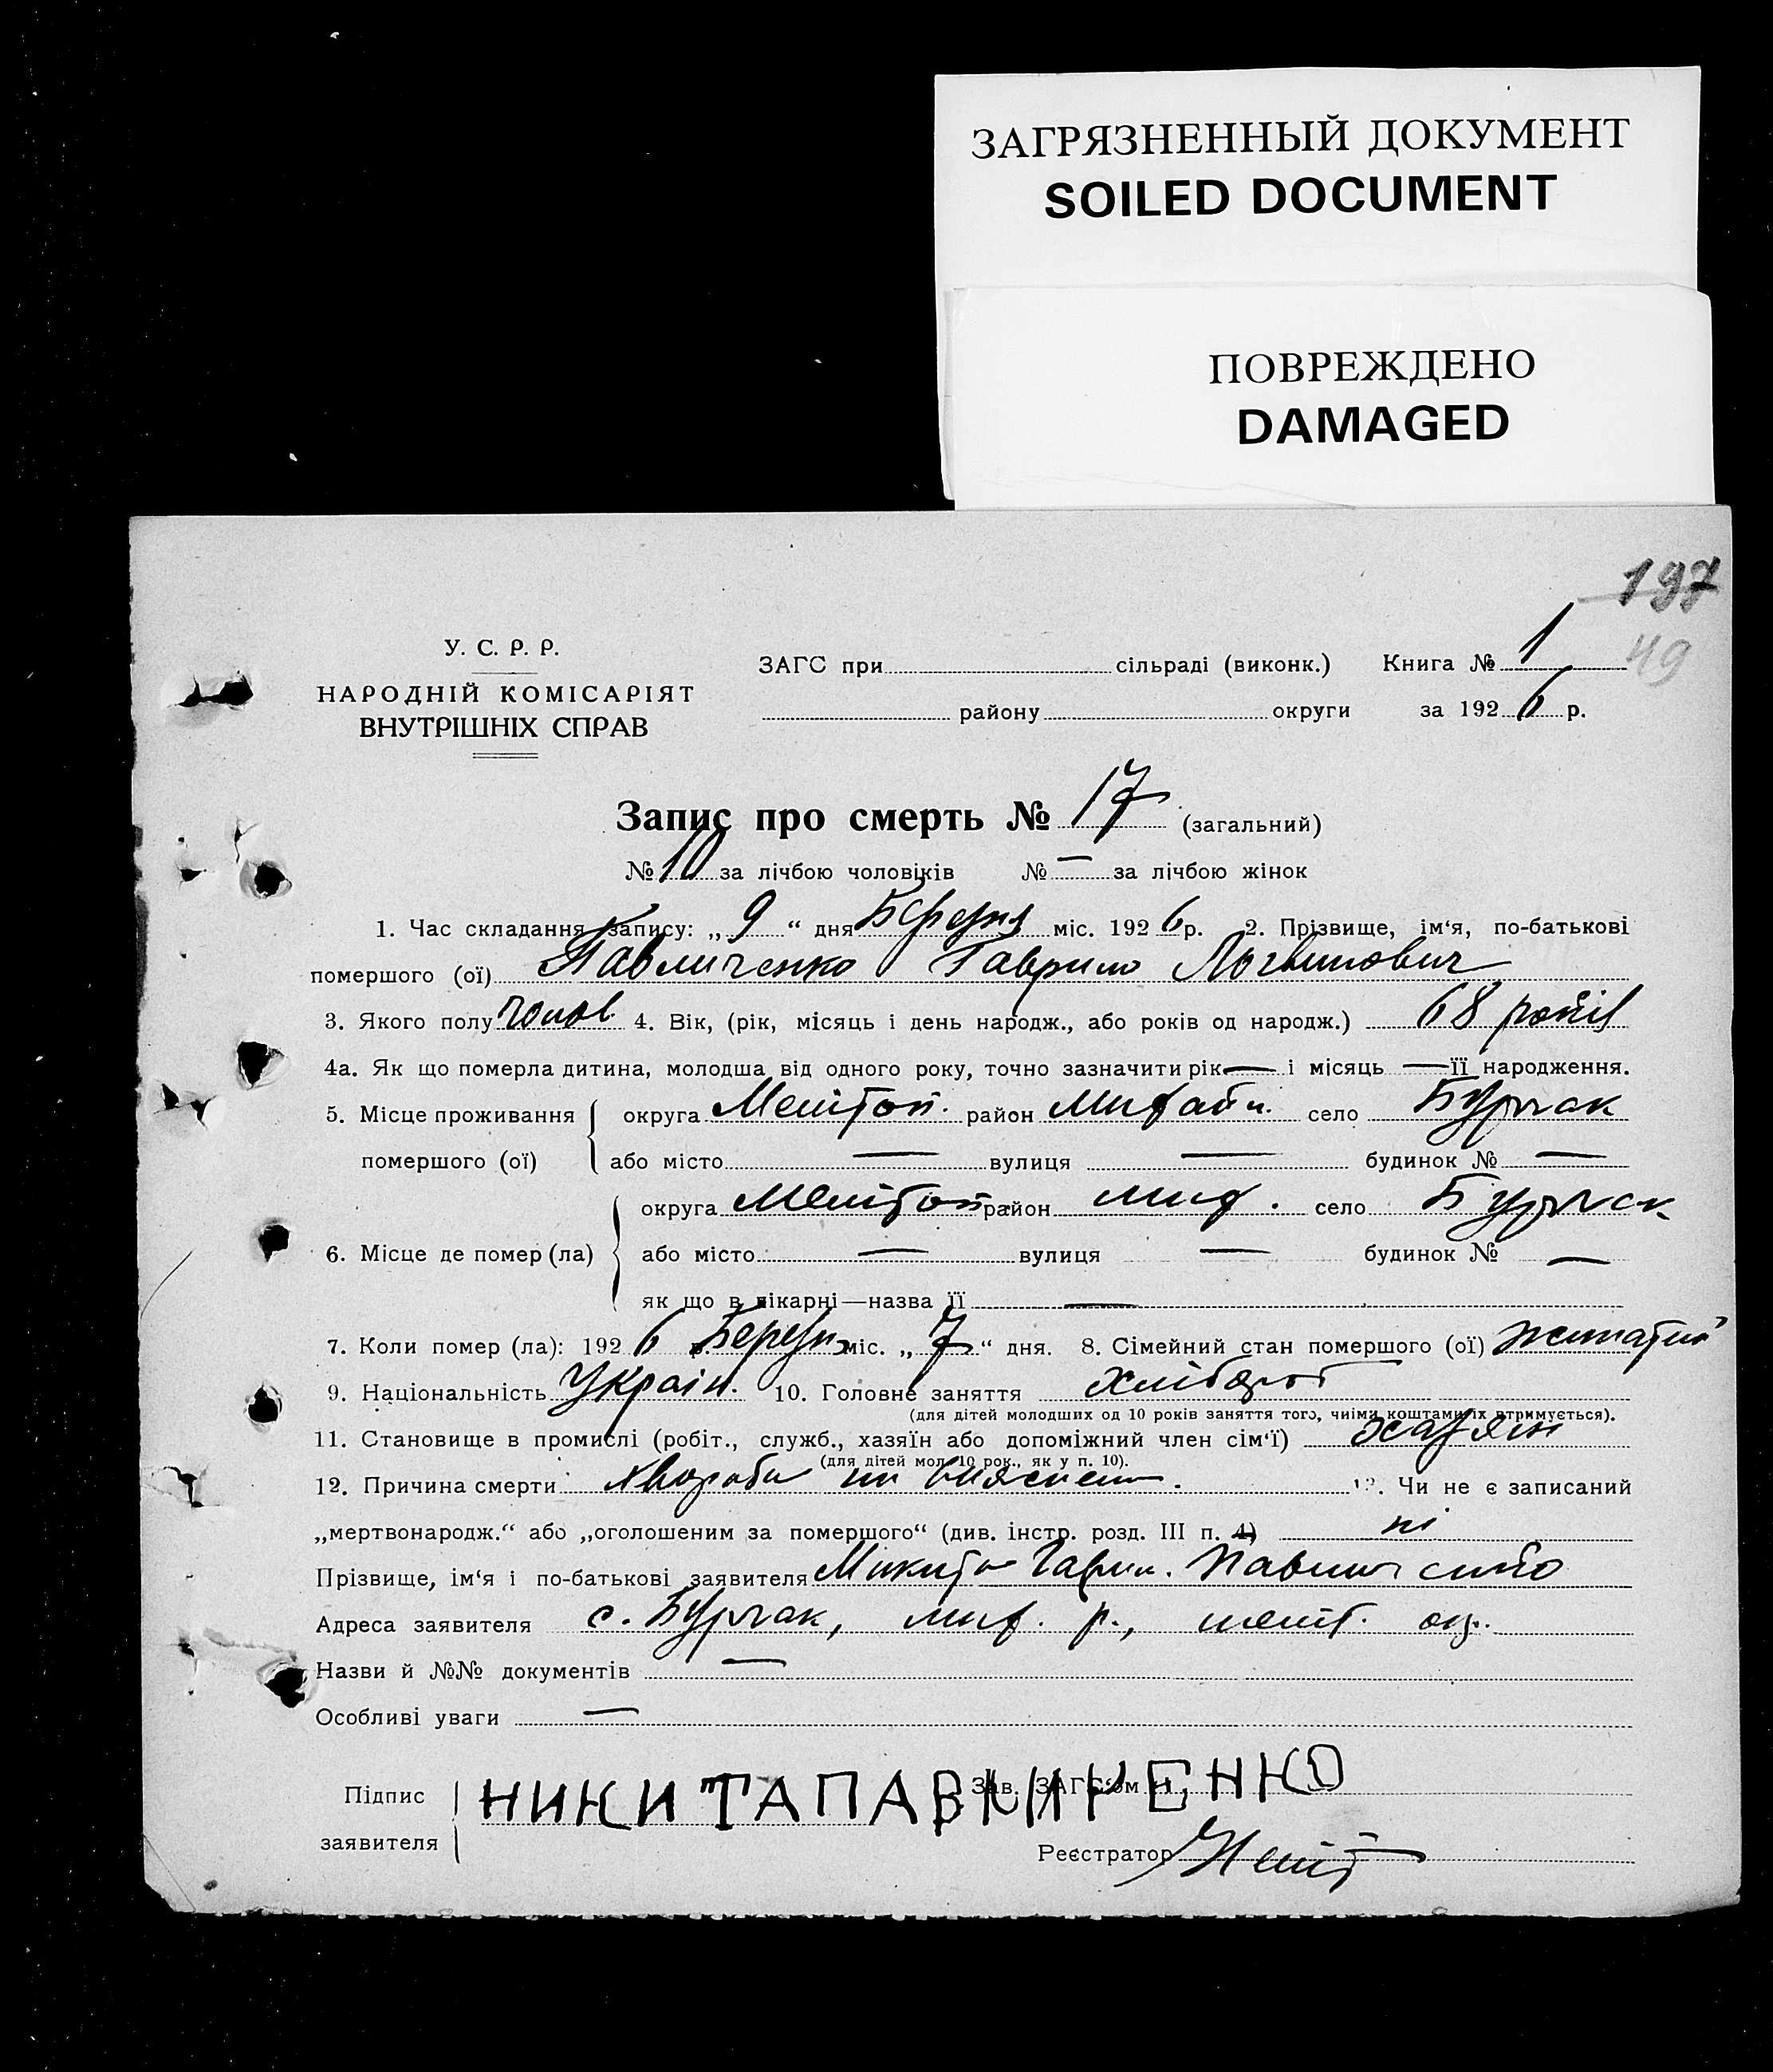 ЗАГРЯЗНЕННЫЙ ДОКУМЕНТ
SOILED DOCUMENT
ПОВРЕЖДЕНО
DAMAGED
197
49
У. С. Р. Р.
НАРОДНІЙ КОМІСАРІЯТ
ВНУТРІШНІХ СПРАВ
ЗАГС при сільраді (виконк.) Книга № 1
району округи за 1926 р.
Запис про смерть № 17 (загальний)
№ 10 за лічбою чоловіків № — за лічбою жінок
1. Час складання запису: „ 9 “ дня Березня міс. 1926 р. 2. Прізвище, ім‘я, по-батькові
помершого (ої) Павличенко Гаврило Логвинович
3. Якого полу чолов. 4. Вік, (рік, місяць і день народж., або років од народж.) 68 років
4а. Як що померла дитина, молодша від одного року, точно зазначити рік — і місяць — її народження.
5. Місце проживання помершого (ої) округа Мелітоп. район Михайл. село Бурчак
або місто — вулиця — будинок № —
6. Місце де помер (ла) округа Мелітоп район мих. село Бурчак
або місто — вулиця — будинок № —
як що в лікарні—назва її —
7. Коли помер (ла): 1926 р. Березн міс. „ 7 “ дня. 8. Сімейний стан помершого (ої) жонатий
9. Національність Україн. 10. Головне заняття хлібороб
(для дітей молодших од 10 років заняття того, чиїми коштами їх втримується).
11. Становище в промислі (робіт., служб., хазяїн або допоміжний член сім‘ї) хазяїн
(для дітей мол. 10 рок., як у п. 10).
12. Причина смерти хвороба не вияснена. 13. Чи не є записаний
„мертвонародж.“ або „оголошеним за помершого“ (див. інстр. розд. III п. 4) ні
Прізвище, ім‘я і по-батькові заявителя Микита Гаврил. Павличенко
Адреса заявителя с. Бурчак, мих. р., меліт. окр.
Назви й №№ документів —
Особливі уваги —
Підпис заявителя НИКИТА ПАВЛИЧЕНКО
Зав. ЗАГС‘ом
Реєстратор